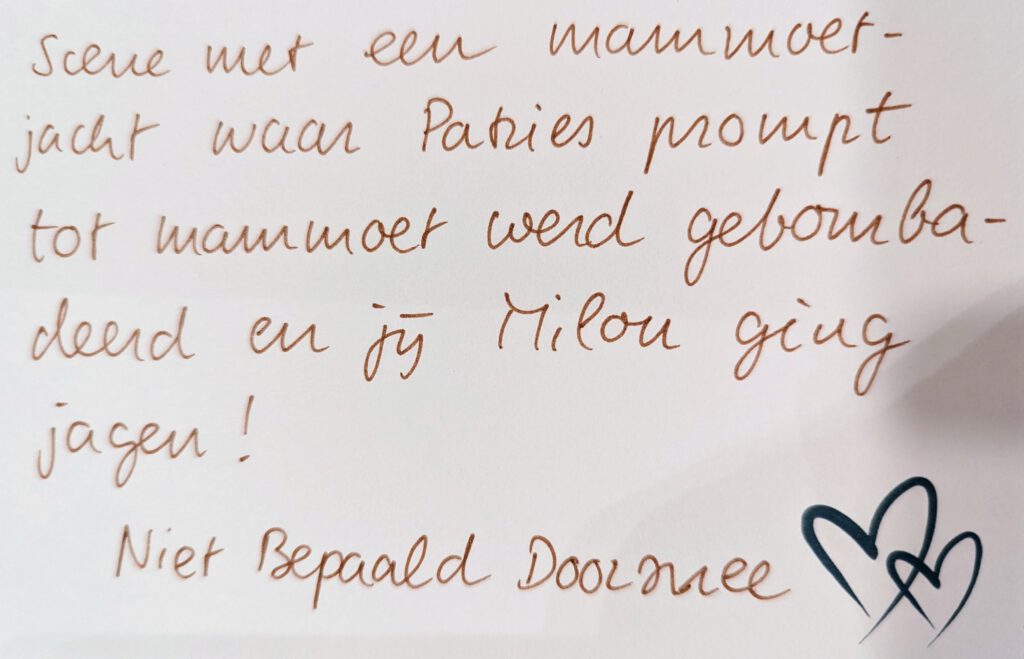 Scene met een mammoet-
jacht waar Patries prompt
tot mammoet werd gebomba-
deerd en jij Milou ging
jagen!
Niet Bepaald Doorsnee